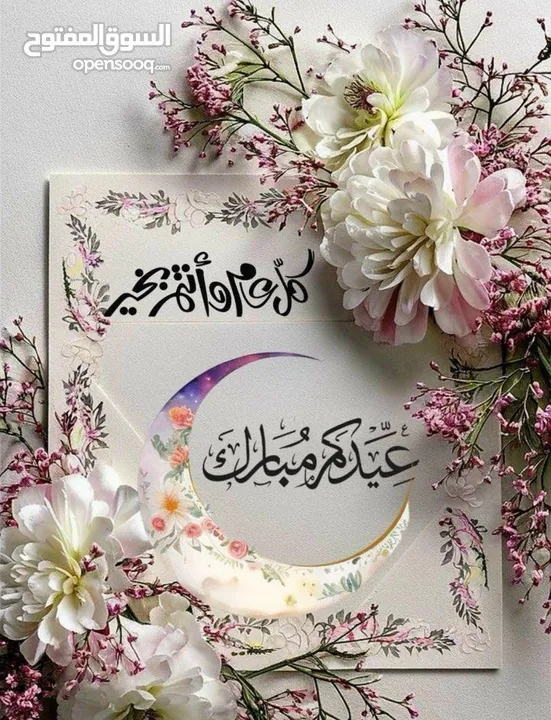 السوق المفتوح
opensooq.com
كل عام وأنتم بخير
عيدكم مبارك